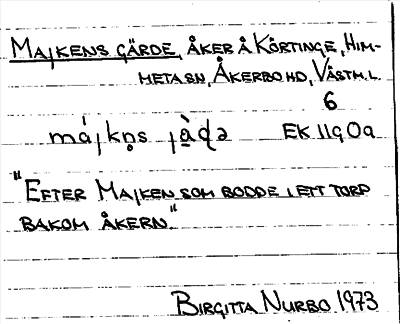 MAJKENS GÄRDE, ÅKER Å KÖRTINGE, HIM-
META SN, ÅKERBO HD, VÄSTM. L.
6
EK 11g 0a
"EFTER MAJKEN SOM BODDE I ETT TORP
BAKOM ÅKERN."
BIRGITTA NURBO 1973